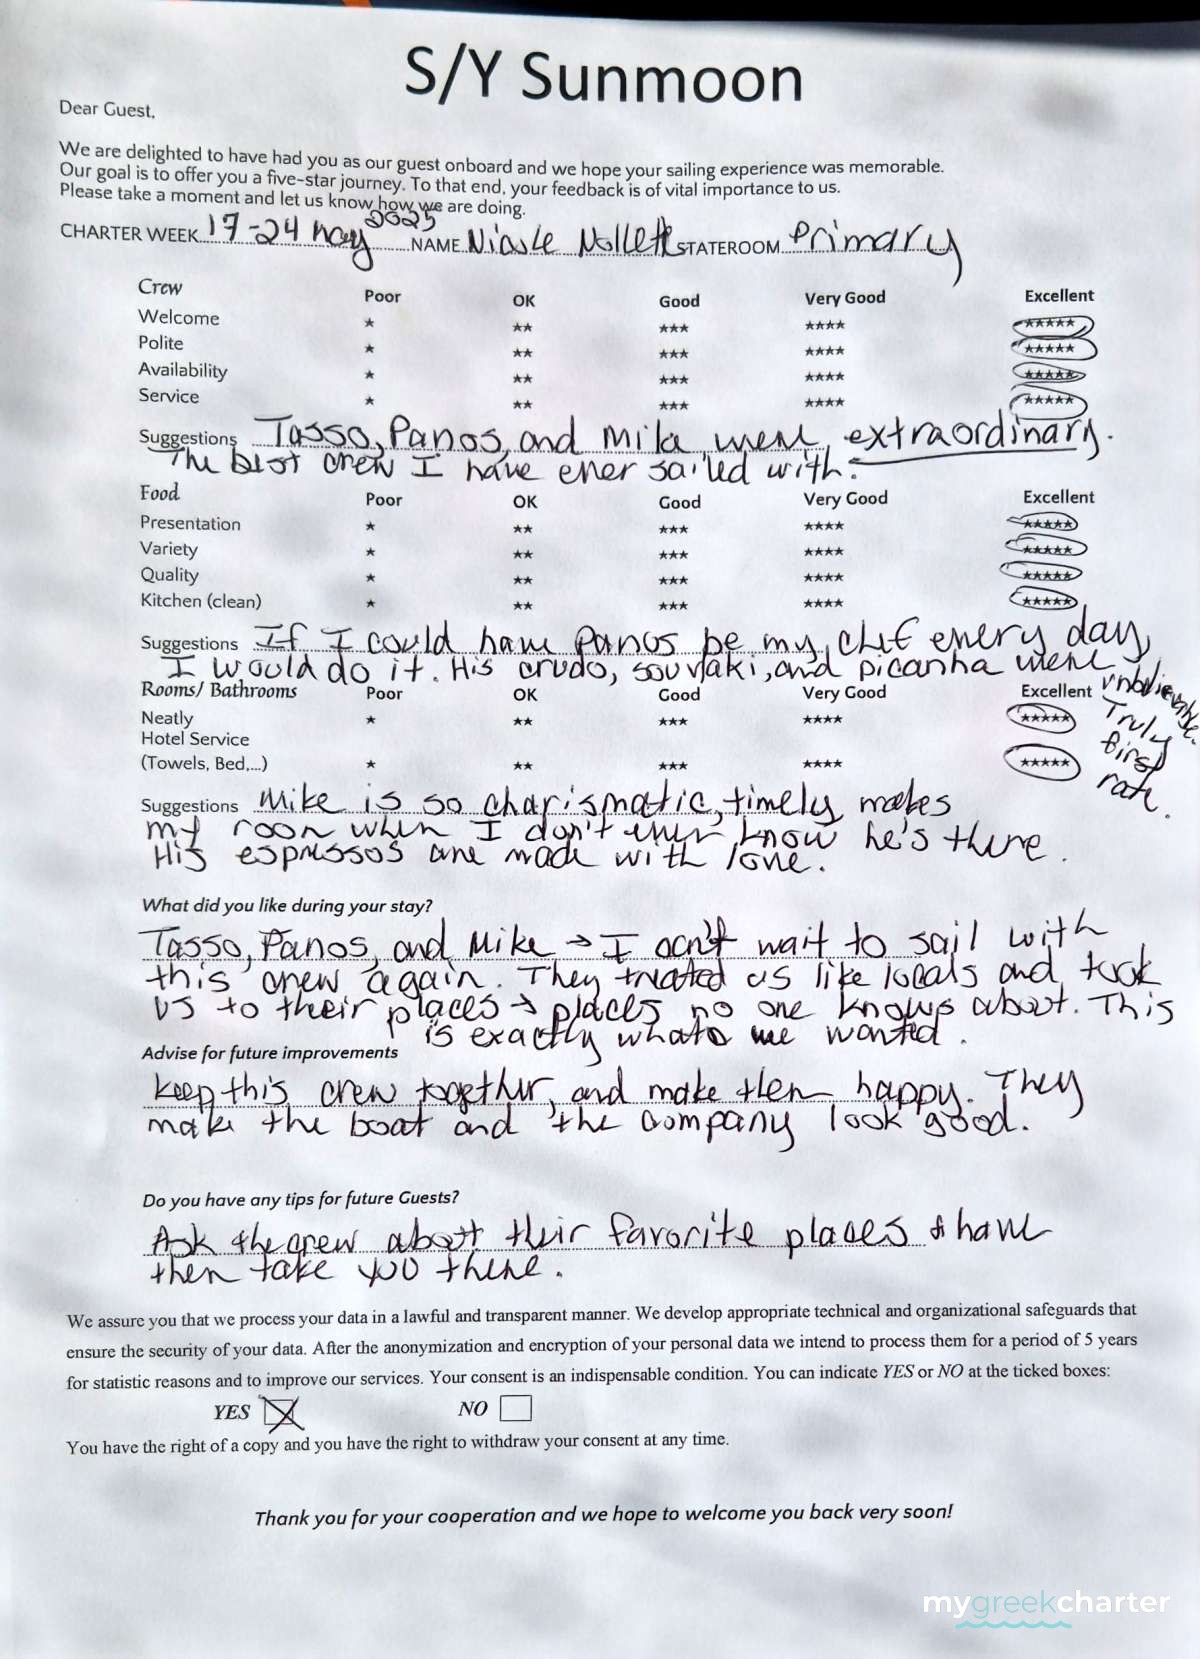 S/Y Sunmoon
Dear Guest,
We are delighted to have had you as our guest onboard and we hope your sailing experience was memorable.
Our goal is to offer you a five-star journey. To that end, your feedback is of vital importance to us.
Please take a moment and let us know how we are doing.
CHARTER WEEK 17-24 May 2025 NAME Nicole STATEROOM Primary
Crew Poor OK Good Very Good Excellent
Welcome ★ ★★ ★★★ ★★★★ ★★★★★
Polite ★ ★★ ★★★ ★★★★ ★★★★★
Availability ★ ★★ ★★★ ★★★★ ★★★★★
Service ★ ★★ ★★★ ★★★★ ★★★★★
Suggestions Tasso, Panos, and Mike were extraordinary.
The best crew I have ever sailed with.
Food Poor OK Good Very Good Excellent
Presentation ★ ★★ ★★★ ★★★★ ★★★★★
Variety ★ ★★ ★★★ ★★★★ ★★★★★
Quality ★ ★★ ★★★ ★★★★ ★★★★★
Kitchen (clean) ★ ★★ ★★★ ★★★★ ★★★★★
Suggestions If I could have Panos be my chef every day,
I would do it. His crudo, souvlaki, and picanha were
unbelievable.
Truly
first
rate.
Rooms/ Bathrooms Poor OK Good Very Good Excellent
Neatly ★ ★★ ★★★ ★★★★ ★★★★★
Hotel Service
(Towels, Bed,...) ★ ★★ ★★★ ★★★★ ★★★★★
Suggestions Mike is so charismatic, timely makes
my room when I don't even know he's there.
His espressos are made with love.
What did you like during your stay?
Tasso, Panos, and Mike → I can't wait to sail with
this crew again. They treated us like locals and took
us to their places → places no one knows about. This
is exactly what we wanted.
Advise for future improvements
Keep this crew together, and make them happy. They
make the boat and the company look good.
Do you have any tips for future Guests?
Ask the crew about their favorite places & have
them take you there.
We assure you that we process your data in a lawful and transparent manner. We develop appropriate technical and organizational safeguards that
ensure the security of your data. After the anonymization and encryption of your personal data we intend to process them for a period of 5 years
for statistic reasons and to improve our services. Your consent is an indispensable condition. You can indicate YES or NO at the ticked boxes:
YES NO
You have the right of a copy and you have the right to withdraw your consent at any time.
Thank you for your cooperation and we hope to welcome you back very soon!
mygreekcharter